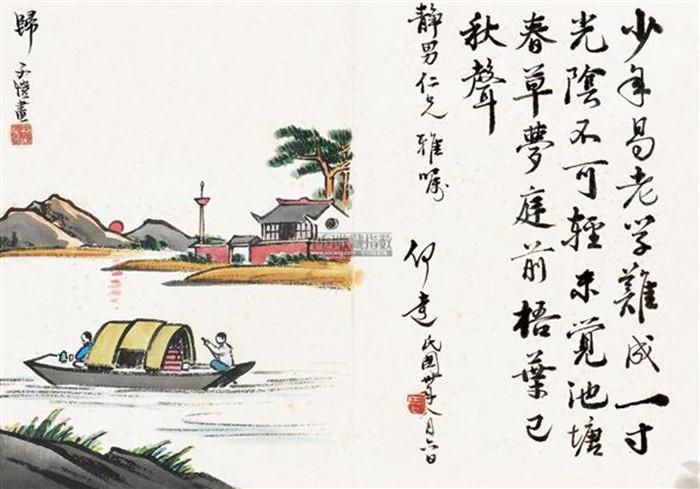 少年易老学難成一寸
光陰不可輕未覺池塘
春草夢庭前梧葉已
秋聲
靜男仁兄 雅嘱
民國
歸
子愷畫